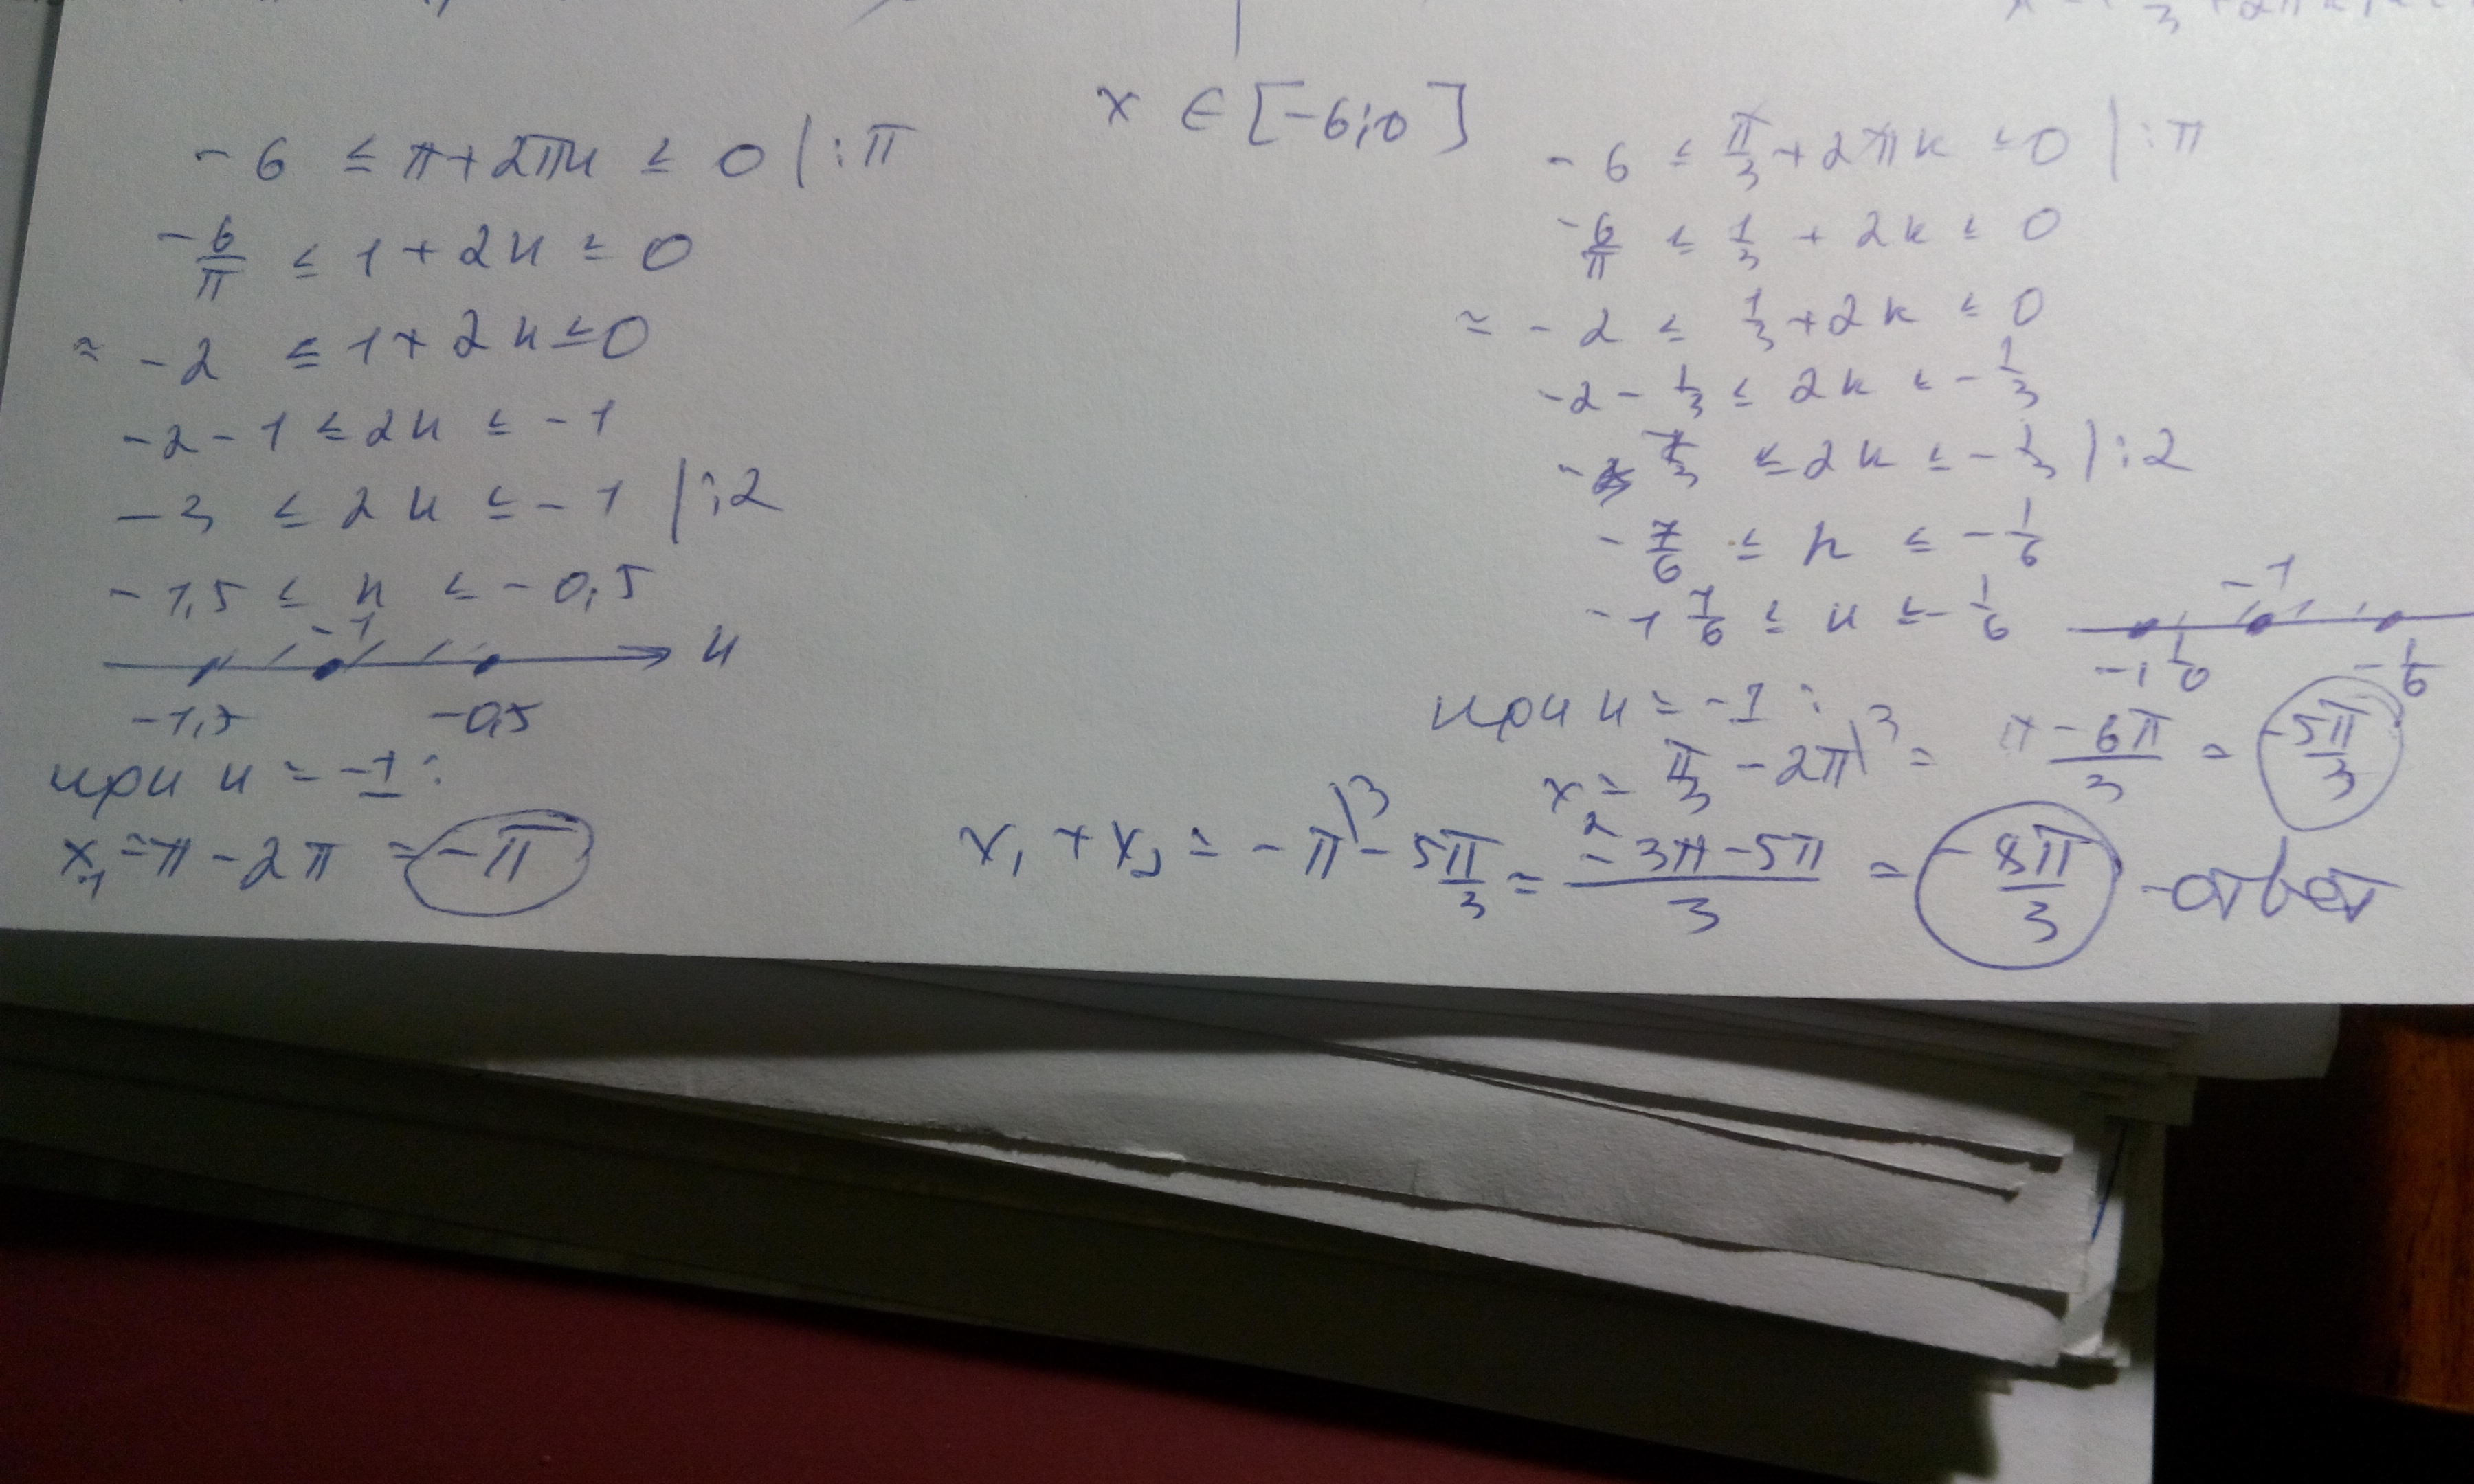 x ∈ [-6;0]
-6 ≤ π+2πn ≤ 0 |:π
-6/π ≤ 1+2n ≤ 0
≈ -2 ≤ 1+2n ≤ 0
-2-1 ≤ 2n ≤ -1
-3 ≤ 2n ≤ -1 |:2
-1,5 ≤ n ≤ -0,5
-1
n
-1,5 -0,5
при n = -1:
x₁ = π-2π = -π
-6 ≤ π/3+2πk ≤ 0 |:π
-6/π ≤ 1/3 + 2k ≤ 0
≈ -2 ≤ 1/3+2k ≤ 0
-2-1/3 ≤ 2k ≤ -1/3
-7/3 ≤ 2k ≤ -1/3 |:2
-7/6 ≤ k ≤ -1/6
-1 1/6 ≤ k ≤ -1/6
-1
-1 1/6 -1/6
при k = -1:
x₂ = π/3 - 2π\3 = π-6π/3 = -5π/3
x₁ + x₂ = -π\3 - 5π/3 = -3π-5π/3 = -8π/3 -ответ